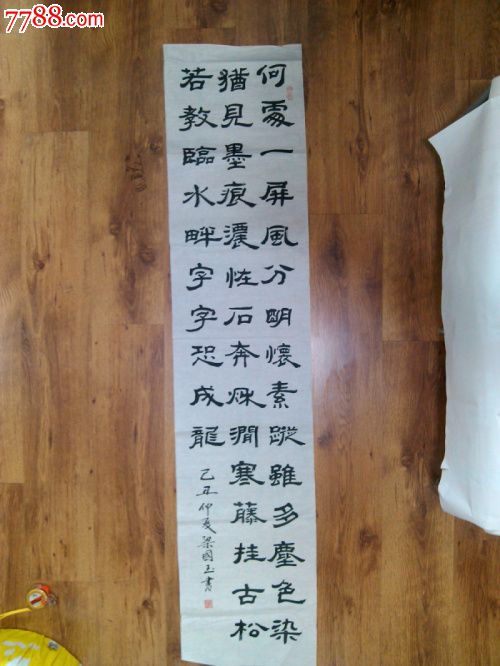 7788.com
何處一屏風分明懷素蹤雖多塵色染
猶見墨痕濃恠石奔秋澗寒藤挂古松
若教臨水畔字字恐成龍
己丑仲夏梁國玉書